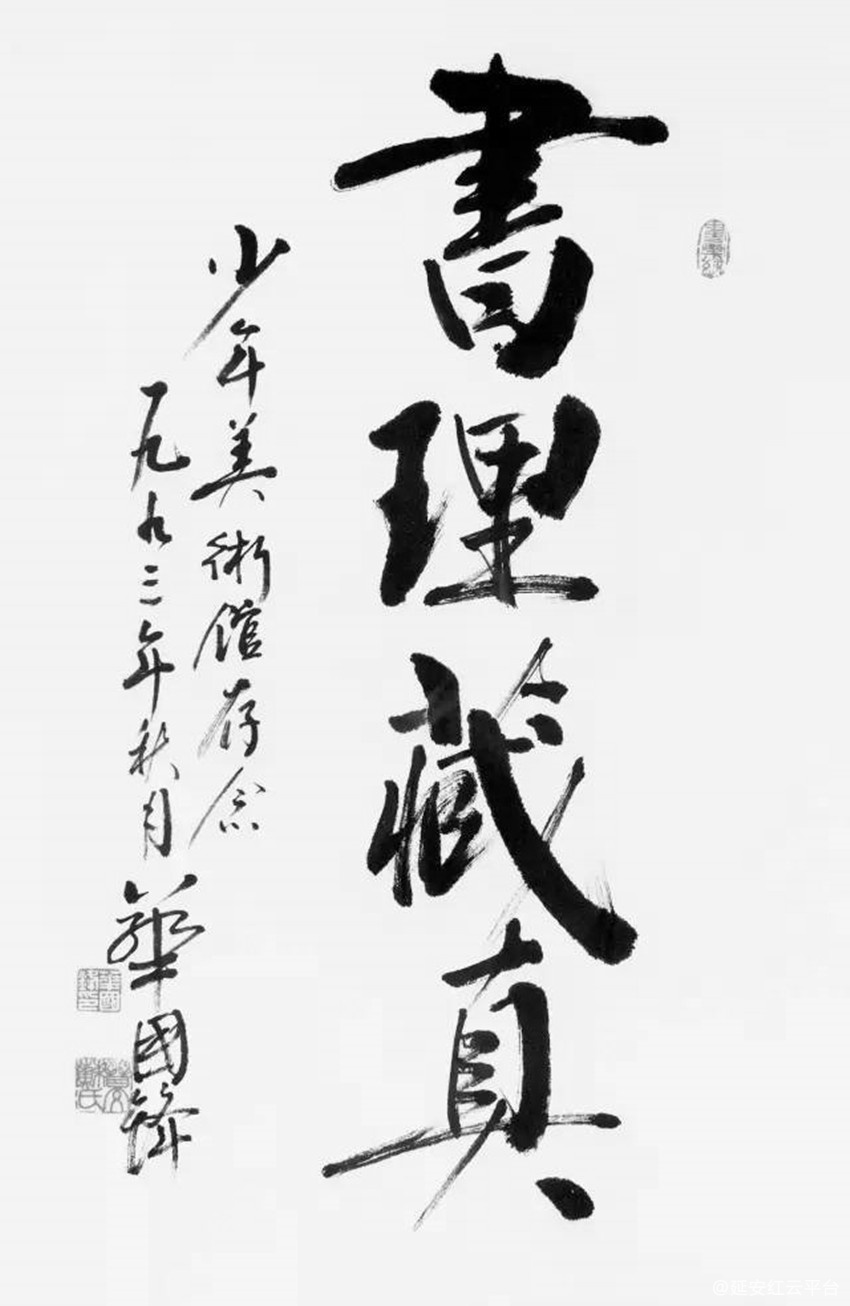 書理藏真
少年美術館存念
一九九三年秋月
華國鋒
@延安红云平台